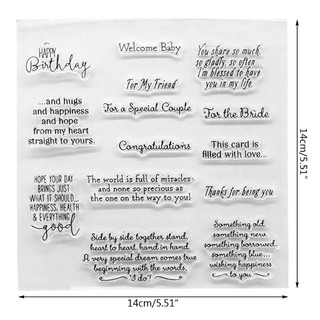 HAPPY
Birthday
Welcome Baby
You share so much,
so gladly, so often...
I'm blessed to have
you in my life.
For My Friend
...and hugs
and happiness
and hope
from my heart
straight to yours.
For a Special Couple
For the Bride
Congratulations
This card is
filled with love...
HOPE YOUR DAY
BRINGS JUST
WHAT IT SHOULD...
HAPPINESS, HEALTH
& EVERYTHING
good
The world is full of miracles
and none so precious as
the one on the way to you!
Thanks for being you
Side by side together stand,
heart to heart, hand in hand.
A very special dream comes true
beginning with the words,
"I do"!
Something old,
something new,
something borrowed,
something blue...
wishing happiness
to you
14cm/5.51"
14cm/5.51"